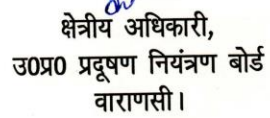 क्षेत्रीय अधिकारी,
उ0प्र0 प्रदूषण नियंत्रण बोर्ड
वाराणसी।